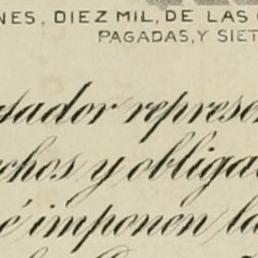 NES, DIEZ MIL, DE LAS
PAGADAS, Y SIET
sador represe
chos y obliga
é imponen la